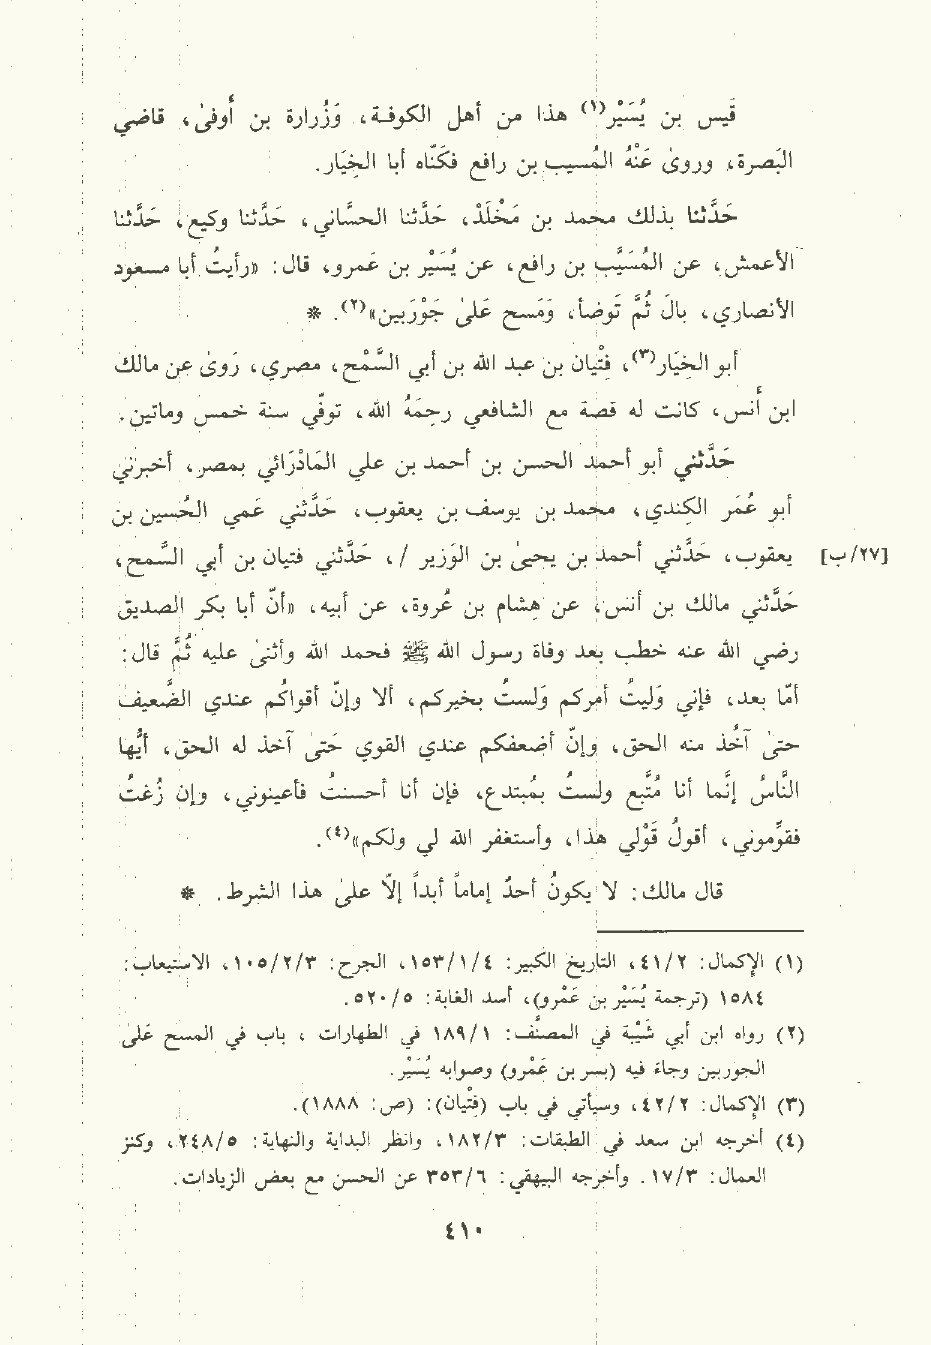 قَيس بن يُسَيْر(١) هذا من أهل الكوفـة، وَزُرارة بن أُوفىٰ، قاضي
البَصرة، وروىٰ عَنْهُ المُسيب بن رافع فكَنّاه أبا الخِيَار.
حَدَّثنا بذلك محمد بن مَخْلَدْ، حَدَّثنا الحسَّاني، حَدَّثنا وكيع، حَدَّثنا
الأعمش، عن المُسَيَّب بن رافع، عن يُسَيْر بن عَمرو، قال: «رأيتُ أبا مسعود
الأنصاري، بَالَ ثُمَّ تَوضأ، وَمَسح عَلىٰ جَوْرَبين»(٢). *
أبو الخِيَار(٣)، فِتْيان بن عبد الله بن أبي السَّمْح، مصري، رَوىٰ عن مالك
ابن أَنس، كانت له قصة مع الشافعي رحِمَهُ الله، توفّي سنة خمس ومائتين.
حَدَّثني أبو أحمد الحسن بن أحمد بن علي المَاذْرَائي بمصر، أخبرني
أبو عُمَر الكِندي، محمد بن يوسف بن يعقوب، حَدَّثني عَمي الحُسين بن
[٢٧/ب] يعقوب، حَدَّثني أحمد بن يحيىٰ بن الوَزير /، حَدَّثني فتيان بن أبي السَّمح،
حَدَّثني مالك بن أنس، عن هِشام بن عُروة، عن أبيه، «أنّ أبا بكر الصديق
رضي الله عنه خطب بعد وفاة رسول الله ﷺ فحمد الله وأثنىٰ عليه ثُمَّ قال:
أمّا بعد، فإني وَليتُ أمركم وَلستُ بخيركم، ألا وإنّ أقواكُم عندي الضَّعيف
حتىٰ آخُذ منه الحق، وإنّ أضعفكم عندي القوي حَتىٰ آخذ له الحق، أيُّها
النَّاسُ إنَّما أنا مُتَّبع ولستُ بمُبتدع، فإن أنا أحسنتُ فأعينوني، وإن زُغتُ
فقوِّموني، أقولُ قَوْلي هذا، وأستغفر الله لي ولكم»(٤).
قال مالك: لا يكونُ أحدٌ إماماً أبداً إلّا علىٰ هذا الشرط. *
(١) الإكمال: ٤١/٢، التاريخ الكبير: ١٥٣/١/٤، الجرح: ١٠٥/٢/٣، الاستيعاب:
١٥٨٤ (ترجمة يُسَيْر بن عَمْرو)، أسد الغابة: ٥٢٠/٥.
(٢) رواه ابن أبي شَيْبة في المصنَّف: ١٨٩/١ في الطهارات ، باب في المسح عَلىٰ
الجوربين وجاء فيه (بسر بن عَمْرو) وصوابه يُسَيْر.
(٣) الإكمال: ٤٢/٢، وسيأتي في باب (فِتْيان): (ص: ١٨٨٨).
(٤) أخرجه ابن سعد في الطبقات: ١٨٢/٣، وانظر البداية والنهاية: ٢٤٨/٥، وكنز
العمال: ١٧/٣. وأخرجه البيهقي: ٣٥٣/٦ عن الحسن مع بعض الزيادات.
٤١٠